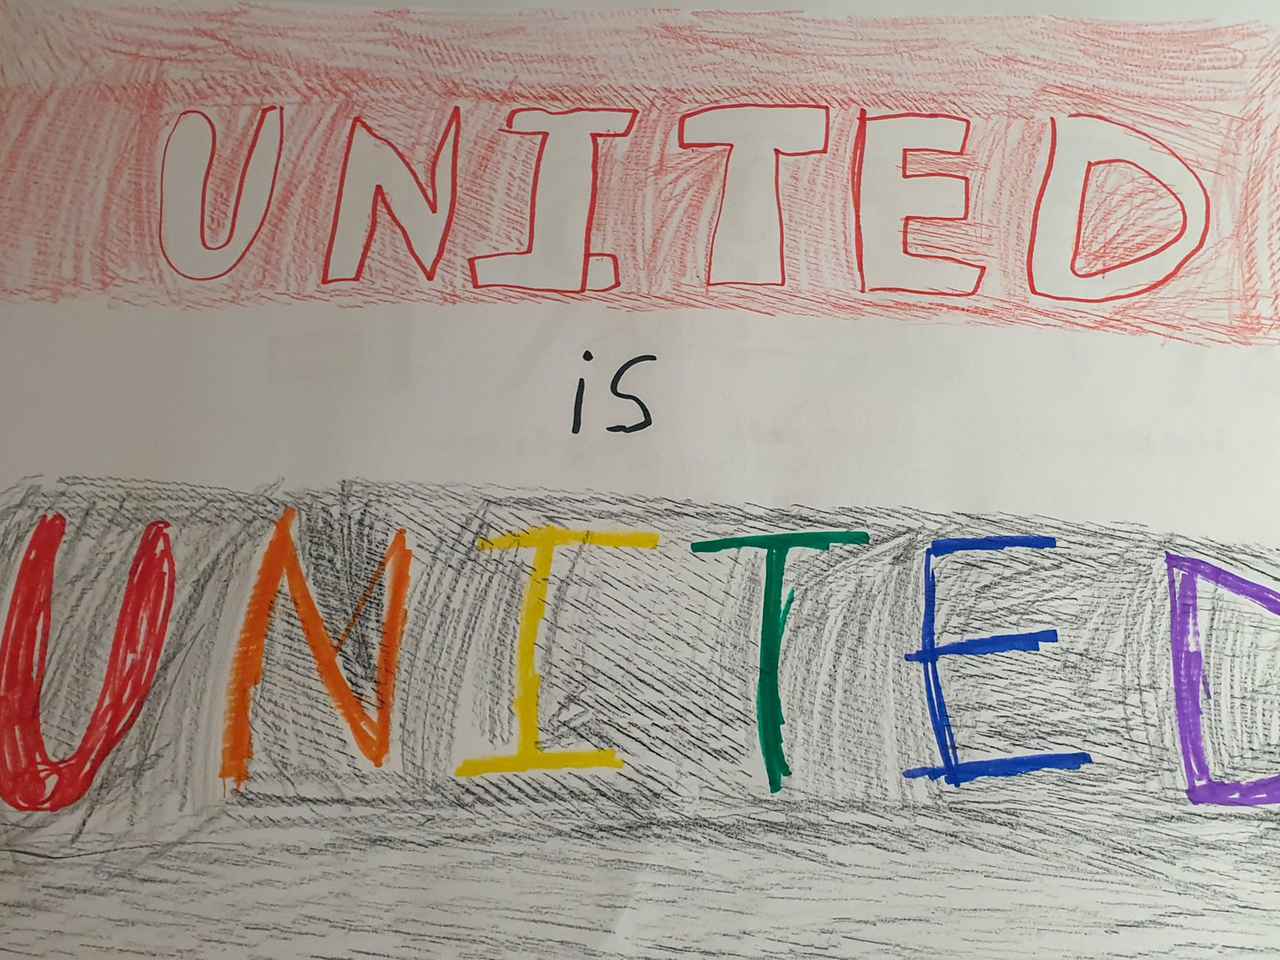 UNITED
is
UNITED